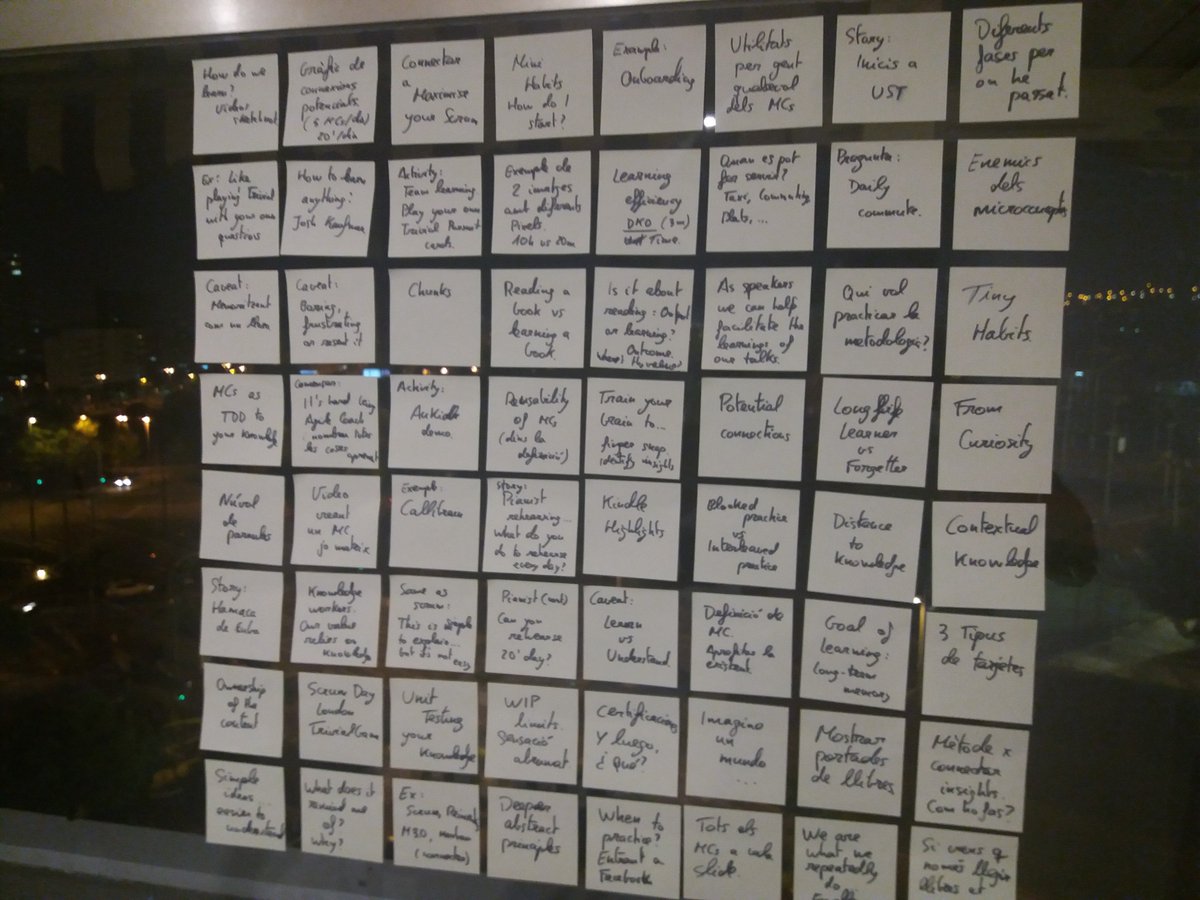 How do we
learn?
Video
sketchbook
Gràfic de
connexions
potencials
(5 MCs/dia)
20'/dia
Connection
a
Maximise
your Scrum
Mini
Habits
How do I
start?
Example:
Onboarding
Utilitats
per gent
qualsevol
dels MCs
Story:
Inicis a
UST
Diferents
fases per
on he
passat.
Ex: Like
playing Trivial
with your own
questions
How to learn
anything:
Josh Kaufman
Activity:
Team learning
Play your own
Trivial Pursuit
cards.
Exemple de
2 imatges
amb diferents
Pixels.
10h vs 20m
Learning
efficiency
(3m)
Time.
Quan es pot
fer servir?
Taxi, commuting
plats, ...
Pregunta:
Daily
commute.
Enemics
dels
microconceptes
Caveat:
Memoritzant
com un lloro
Caveat:
Boring,
frustrating
or resent it
Chunks
Reading a
book vs
learning a
book.
Is it about
reading: Output
or learning?
Outcome.
Where's the value?
As speakers
we can help
facilitate the
learnings of
our talks.
Qui vol
practicar la
metodologia?
Tiny
Habits
MCs as
TDD to
your knowledge
It's hard being
Agile Coach
i nombrar totes
les coses
Activity:
demo
Reusability
of MC
(dins la
definició)
Train your
brain to...
finger snap
identify insights
Potential
connections
Long life
Learner
vs
Forgetter
From
Curiosity
Núvol
de
paraules
Video
creant
un MC
jo mateix
Exemple:
Caltrain
Story:
Pianist
rehearsing...
What do you
do to rehearse
every day?
Kindle
Highlights
Blocked
practice
vs
Interleaved
practice
Distance
to
Knowledge
Contextual
Knowledge
Story:
Hamaca
de
Knowledge
workers.
Our value
relies on
knowledge
Same as
scrum:
This is simple
to explain...
but it's not easy
Pianist (cont)
Can you
rehearse
20' day?
Caveat:
Learn
vs
Understand
Definició de
MC.
Aprofitar la
existent
Goal of
learning:
long-term
memory
3 Tipus
de targetes
Ownership
of the
content
Scrum Day
London
Trivial Game
Unit
Testing
your
knowledge
WIP
limits.
Sensació
Certificación
Y luego,
¿qué?
Imagino
un
mundo
...
Mostrar
portades
de llibres
Mètode x
connectar
insights.
Com ho fas?
Simple
ideas
easier to
understand
What does it
remind me
of?
Why?
Ex:
Scrum,
M30,
Deeper
abstract
principles
When to
practice?
Entrant a
Facebook
Tots els
MCs a cada
slide.
We are
what we
repeatedly
do
Si creus q
només llegir
llibres et